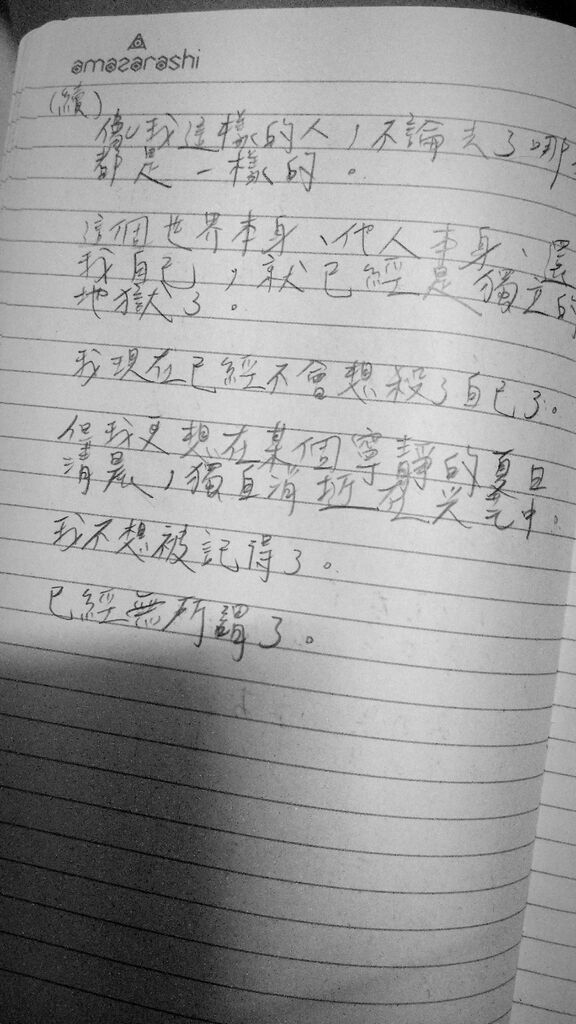 amazarashi
(續)
像我這樣的人，不論去了哪
都是一樣的。
這個世界本身、他人本身、還
我自己，就已經是獨立的
地獄了。
我現在已經不會想殺了自己了。
但我更想在某個寧靜的夏日
清晨，獨自消逝在光芒中。
我不想被記得了。
已經無所謂了。